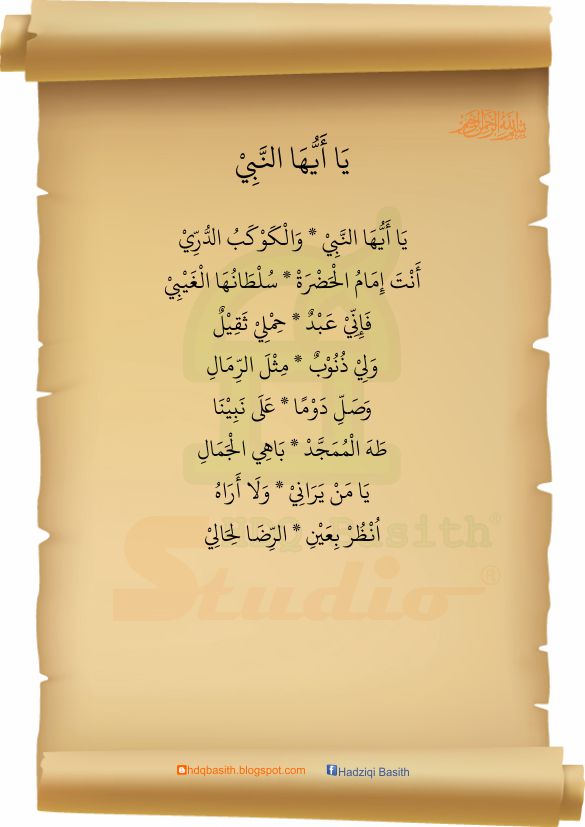 يَا أَيُّهَا النَّبِيْ
يَا أَيُّهَا النَّبِيْ * وَالْكَوْكَبُ الدُّرِّيْ
أَنْتَ إِمَامُ الْحَضْرَةْ * سُلْطَانُهَا الْغَيْبِيْ
فَإِنِّيْ عَبْدٌ * حِمْلِيْ ثَقِيْلٌ
وَلِيْ ذُنُوْبٌ * مِثْلَ الرِّمَالِ
وَصَلِّ دَوْمًا * عَلَى نَبِيْنَا
طَهَ الْمُمَجَّدْ * بَاهِي الْجَمَالِ
يَا مَنْ يَرَانِيْ * وَلَا أَرَاهُ
اُنْظُرْ بِعَيْنِ * الرِّضَا لِحَالِيْ
HdQ Basith®
Studio®
hdqbasith.blogspot.com Hadziqi Basith